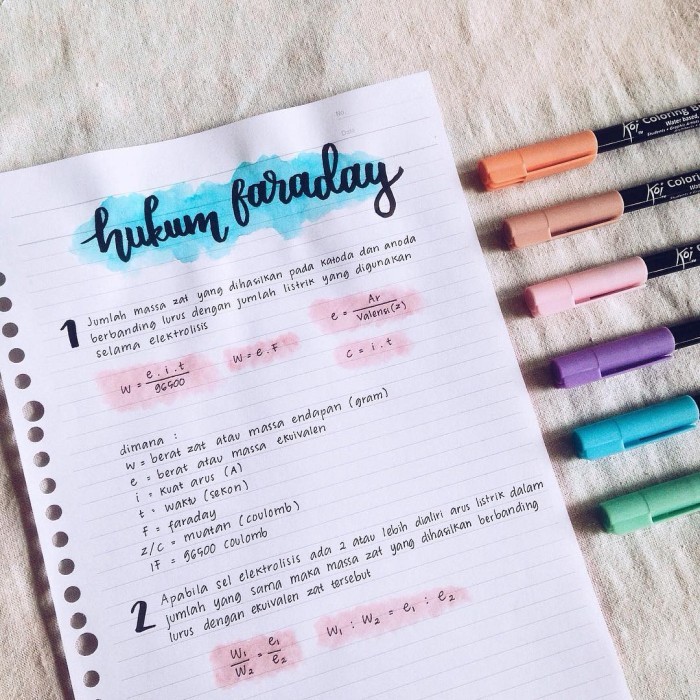 No.
Date
hukum faraday
1 Jumlah massa zat yang dihasilkan pada katoda dan anoda
berbanding lurus dengan jumlah listrik yang digunakan
selama elektrolisis
W = e . i . t / 96500
W = e . F
e = Ar / Valensi(z)
C = i . t
dimana :
W = berat zat atau massa endapan (gram)
e = berat atau massa ekuivalen
i = kuat arus (A)
t = waktu (sekon)
F = faraday
z/C = muatan (coulomb)
1F = 96500 coulomb
2 Apabila sel elektrolisis ada 2 atau lebih dialiri arus listrik dalam
jumlah yang sama maka massa zat yang dihasilkan berbanding
lurus dengan ekuivalen zat tersebut
W1 / W2 = e1 / e2
W1 : W2 = e1 : e2
Koi Coloring B
Water based,
Koi Colori
Koi